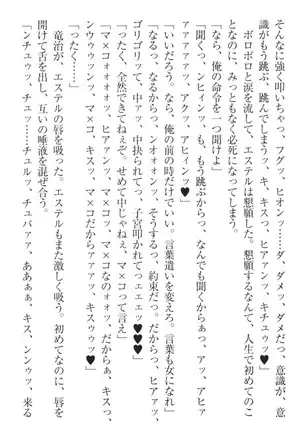 そんなに強く叩いちゃっ、フグッ、ヒオン……ダ、ダメッ、ダメだ、意識が、意
識がもう跳、跳んでしまうっ、キ、キスっ、ヒアァンッ、キチュウッ♥」
ボロボロと涙を流して、エステルは懇願した。懇願するなんて、人生で初めてのこ
となのに、みっともなく必死になってしまう。
「なら、俺の命令を一つ聞けよ」
「聞くっ、ンヒィンッ、も、もう跳ぶからっ、なんでも聞くからぁっ、アッ、アヒァ
アァァァァッ、アクッ、アヒィンッ♥」
「いいだろう。なら、俺の前の時だけでいい。言葉遣いを変えろ。言葉も女になれ」
「なるっ、なるからっ、ンオォオンッ、そうするっ、約束だっ。だからっ、ヒアァッ、
ゴリゴリッて、中ァッ、中抉られてっ、子宮叩かれてっエェェッ♥♥」
「ったく、全然できてねえぞ。せめて中じゃねえ、マ×コって言え」
「マ×コォォォッ、ヒアァンッ、マ×コッ、マ×コなのォォッ、だからぁ、キスっ、
ンウゥッンッ、マ×コ、キスッ、マ×コだからァァァッ、キスゥゥッ♥」
「ったく……」
竜治が、エステルの唇を吸った。エステルもまた激しく吸う。初めてなのに、唇を
開けて舌を出し、互いの唾液を混ぜ合う。
「ンチュウッ、チュッ……チュルッ、チュバァッ、ああぁぁ、キス、ンンゥッ、来る